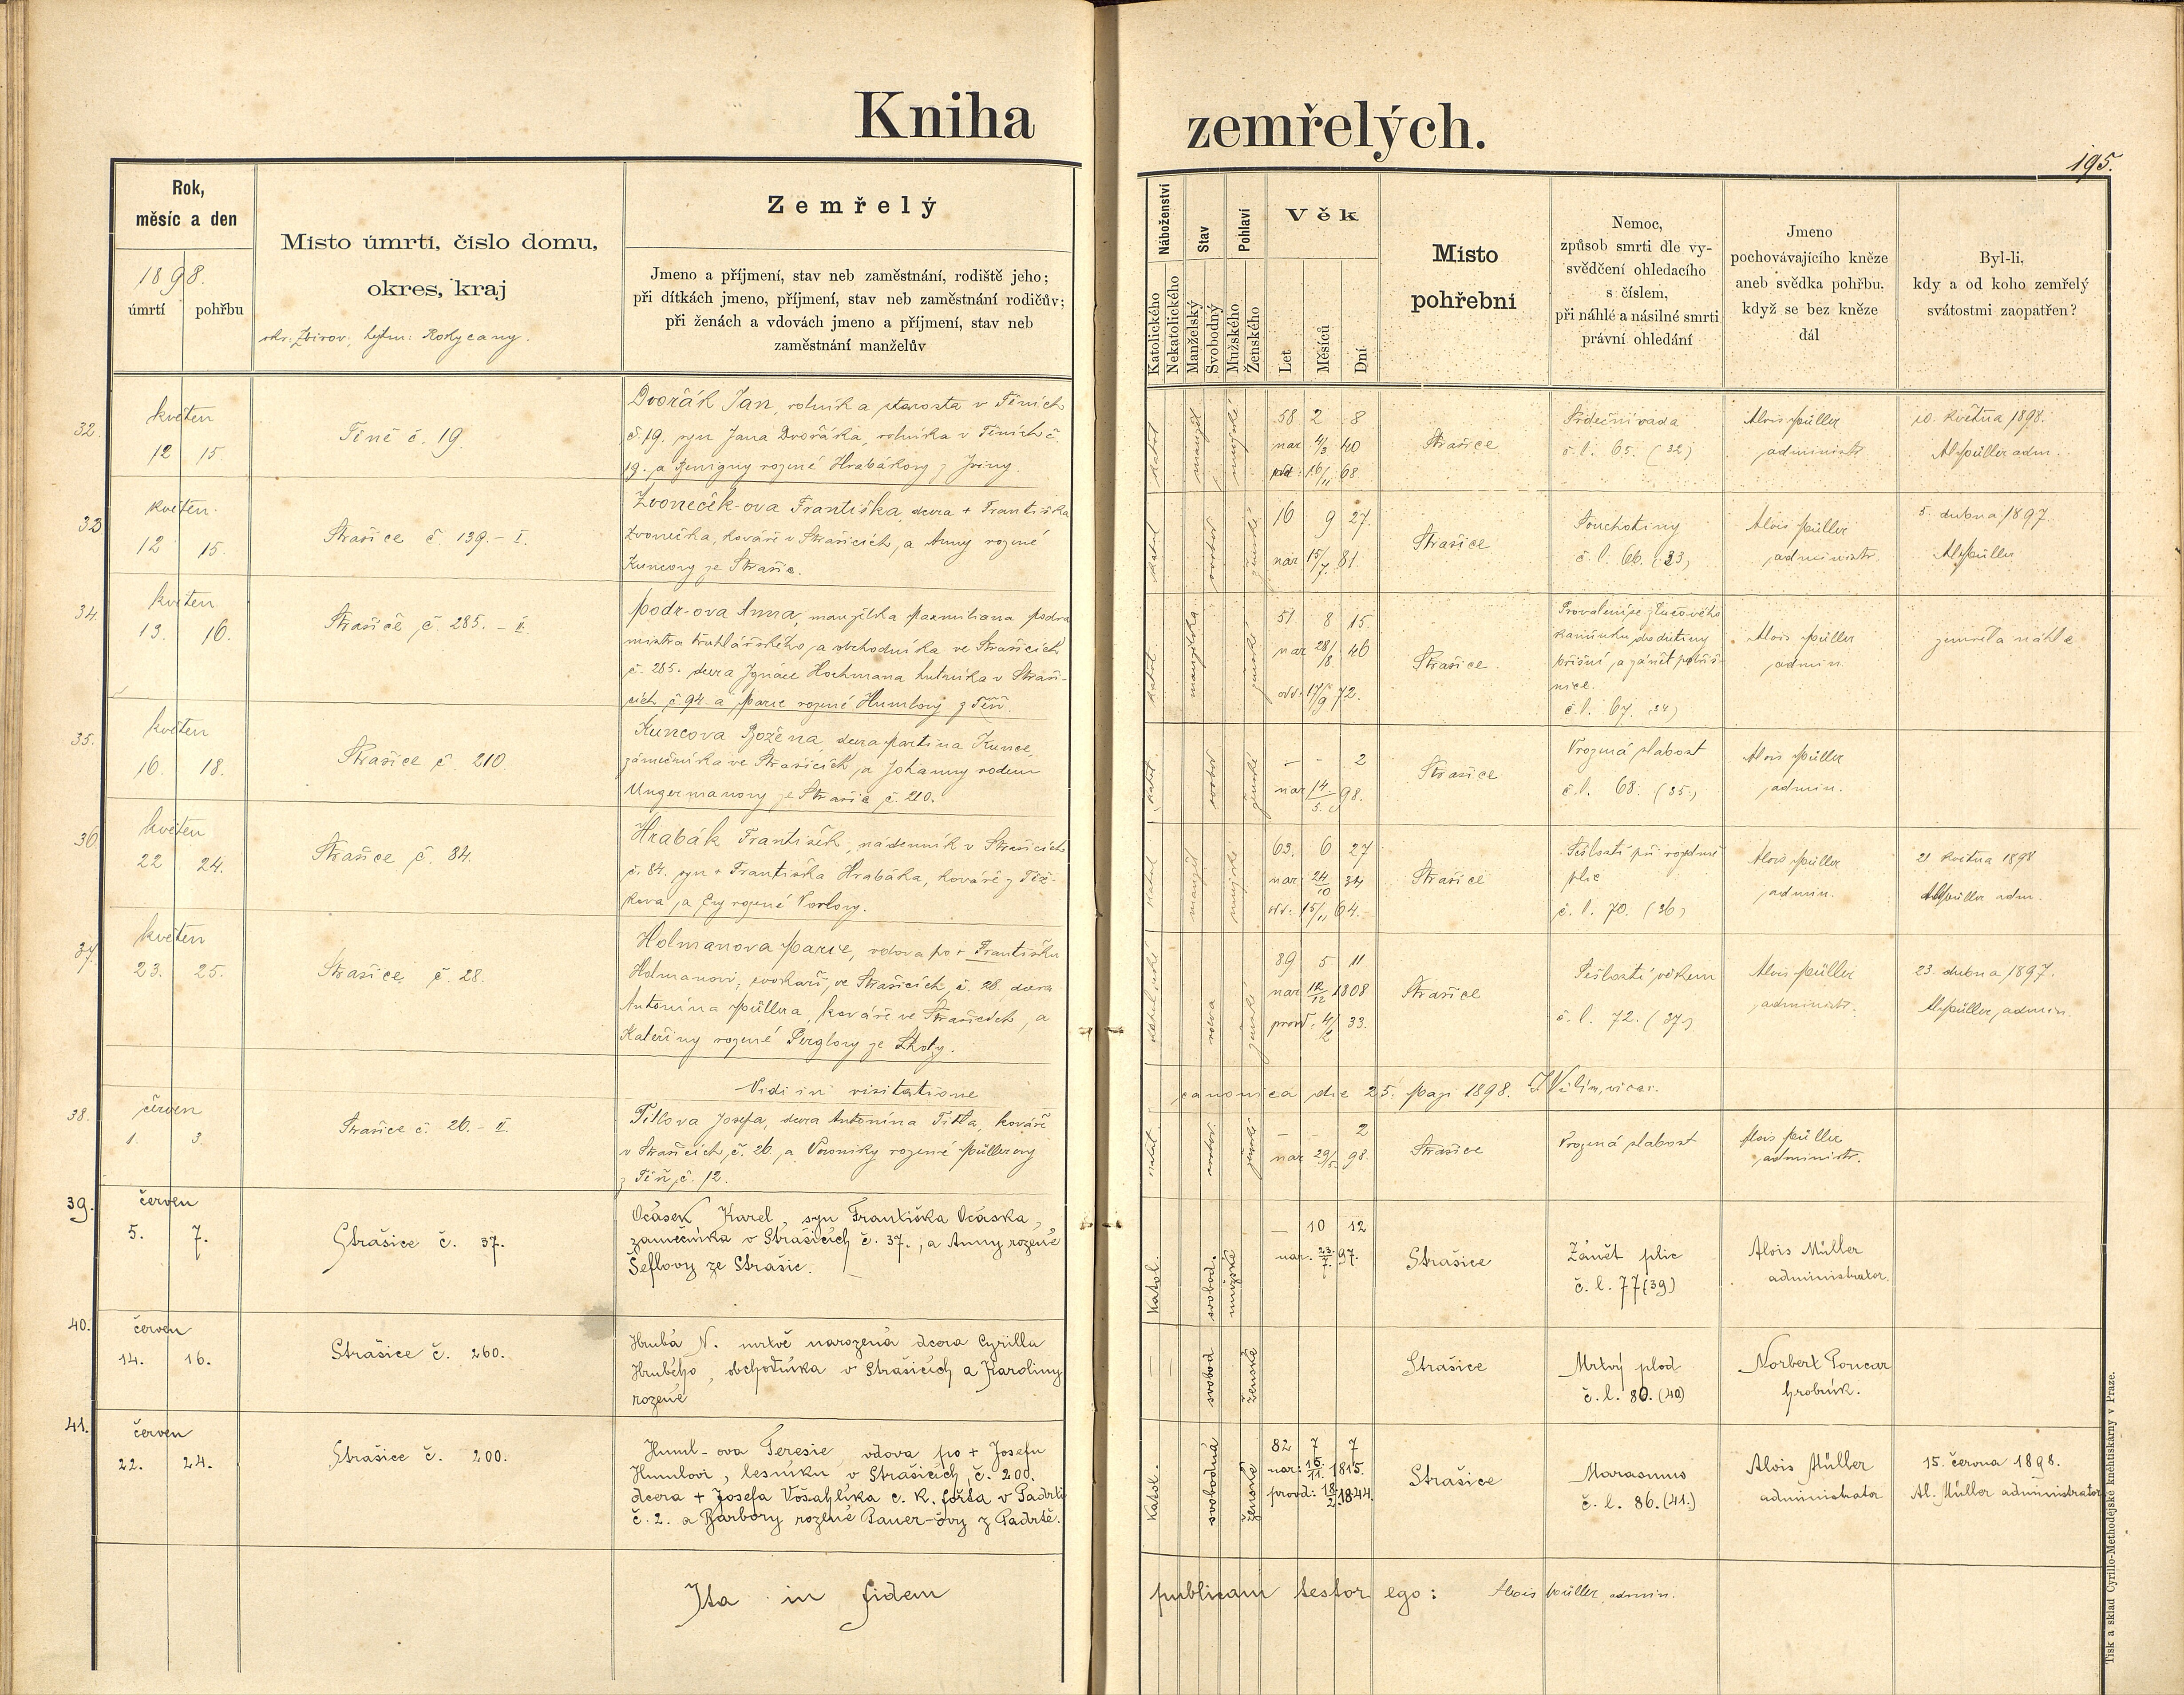 Kniha zemřelých.
195.
Rok,
měsíc a den
1898.
úmrtí pohřbu
Místo úmrtí, číslo domu,
okres, kraj
okr: Zbirov, hejtm: Rokycany.
Zemřelý
Jmeno a příjmení, stav neb zaměstnání, rodiště jeho;
při dítkách jmeno, příjmení, stav neb zaměstnání rodičův;
při ženách a vdovách jmeno a příjmení, stav neb
zaměstnání manželův
Náboženství
Katolického
Nekatolického
Stav
Manželský
Svobodný
Pohlaví
Mužského
Ženského
Věk
Let
Měsíců
Dní
Místo
pohřební
Nemoc,
způsob smrti dle vy-
svědčení ohledacího
s číslem,
při náhlé a násilné smrti
právní ohledání
Jmeno
pochovávajícího kněze
aneb svědka pohřbu,
když se bez kněze
dál
Byl-li,
kdy a od koho zemřelý
svátostmi zaopatřen?
32.
květen
12 15
Těně č. 19.
Dvořák Jan, rolník a starosta v Těních
č. 19. syn Jana Dvořáka, rolníka v Těních č.
19. a Benigny rozené Hrabákovy z Jviny.
katol
manžel
mužské
58 2 8
nar 4/3 40
16/11 68
Strašice
Srdeční vada
č. l. 65. (32)
Alois Müller
administr
10. května 1898.
Al Müller adm.
33
květen.
12 15.
Strašice č. 139. - I.
Zvoneček-ova Františka, dcera + Františka
Zvonečka, kováře v Strašicích, a Anny rozené
Kuncovy ze Strašic.
katol
svobod
ženské
16 9 27.
nar 15/7. 81.
Strašice
Souchotiny
č. l. 66. (33)
Alois Müller
administr.
5. dubna 1897.
Al Müller
34.
květen
13. 16.
Strašice č. 285. - II.
Podr-ova Anna, manželka Maxmiliana Podra
mistra truhlářského a obchodníka ve Strašicích
č. 285. dcera Ignáce Hochmana hutníka v Straši-
cích č 94. a Marie rozené Humlovy z Těň.
katol.
manželka
ženské
51 8 15.
nar 28/8 46
odd. 17/9 72.
Strašice
Provalení se žlučového
kamínku do dutiny
břišní a zánět pobřiš-
nice.
č. l. 67. (34)
Alois Müller
admin.
zemřela náhle
35.
květen
16. 18.
Strašice č. 210.
Kuncova Božena, dcera Martina Kunce,
zámečníka ve Strašicích, a Johanny rodem
Ungermanovy ze Strašic č. 210.
katol.
svobod
ženské
- - 2
nar 14/5. 98.
Strašice
Vrozená slabost
č. l. 68. (35.)
Alois Müller
admin.
36
květen
22 24.
Strašice č. 84.
Hrabák František, nádenník v Strašicích
č. 84. syn + Františka Hrabáka, kováře z Těš-
kova, a Evy rozené Vorlovy.
katol
manžel
mužské
63. 6 27
nar 24/10 34
odd: 15/11 64.
Strašice
Sešlostí při rozedmě
plic
č. l. 70. (36)
Alois Müller
admin.
21 května 1898
Al Müller adm.
37.
květen
23. 25.
Strašice č. 28.
Holmanova Marie, vdova po + Františku
Holmanovi, cvokaři, ve Strašicích, č. 28, dcera
Antonína Müllera, kováře ve Strašicích, a
Kateřiny rozené Perglovy ze Lhoty.
katolické
vdova
ženské
89 5 11
nar 12/12 1808
provd. 4/2 33.
Strašice
Sešlostí věkem
č. l. 72. (37)
Alois Müller
administr.
23. dubna 1897.
Al Müller, admin.
Vidi in visitatione canonica die 25. Maji 1898. J Vilím, vicar.
38.
červen
1. 3.
Strašice č. 26. - II.
Titlova Josefa, dcera Antonína Titla, kováře
v Strašicích, č. 26, a Veroniky rozené Müllerovy
z Těň, č. 12.
katol.
svobod.
ženské
- - 2
nar 29/5 98.
Strašice
Vrozená slabost
Alois Müller
administr.
39.
červen
5. 7.
Strašice č. 37.
Ocásek Karel, syn Františka Ocáska,
zámečníka v Strašicích č. 37., a Anny rozené
Šeflovy ze Strašic.
Katol.
svobod.
mužské
- 10 12
nar. 23/7. 97.
Strašice
Zánět plic
č. l. 77 (39)
Alois Müller
administrator.
40.
červen
14. 16.
Strašice č. 260.
Hrubá N. mrtvě narozená dcera Cyrilla
Hrubého, obchodníka v Strašicích a Karoliny
rozené
svobod
ženské
Strašice
Mrtvý plod
č. l. 80. (40)
Norbert Poucar
hrobník.
41.
červen
22. 24.
Strašice č. 200.
Huml-ova Teresie, vdova po + Josefu
Humlovi, lesníku v Strašicích, č. 200.
dcera + Josefa Vošahlíka c. k. foršta v Padrti
č. 2. a Barbory rozené Pauer-ovy z Padrtě.
Katol.
svobodná
ženské
82 7 7
nar: 15./11. 1815.
provd: 18/2 1844.
Strašice
Marasmus
č. l. 86. (41.)
Alois Müller
administrator
15. června 1898.
Al. Müller administrator
Ita in fidem publicam testor ego: Alois Müller, admin.
Tisk a sklad Cyrillo-Methodějské knihtiskárny v Praze.